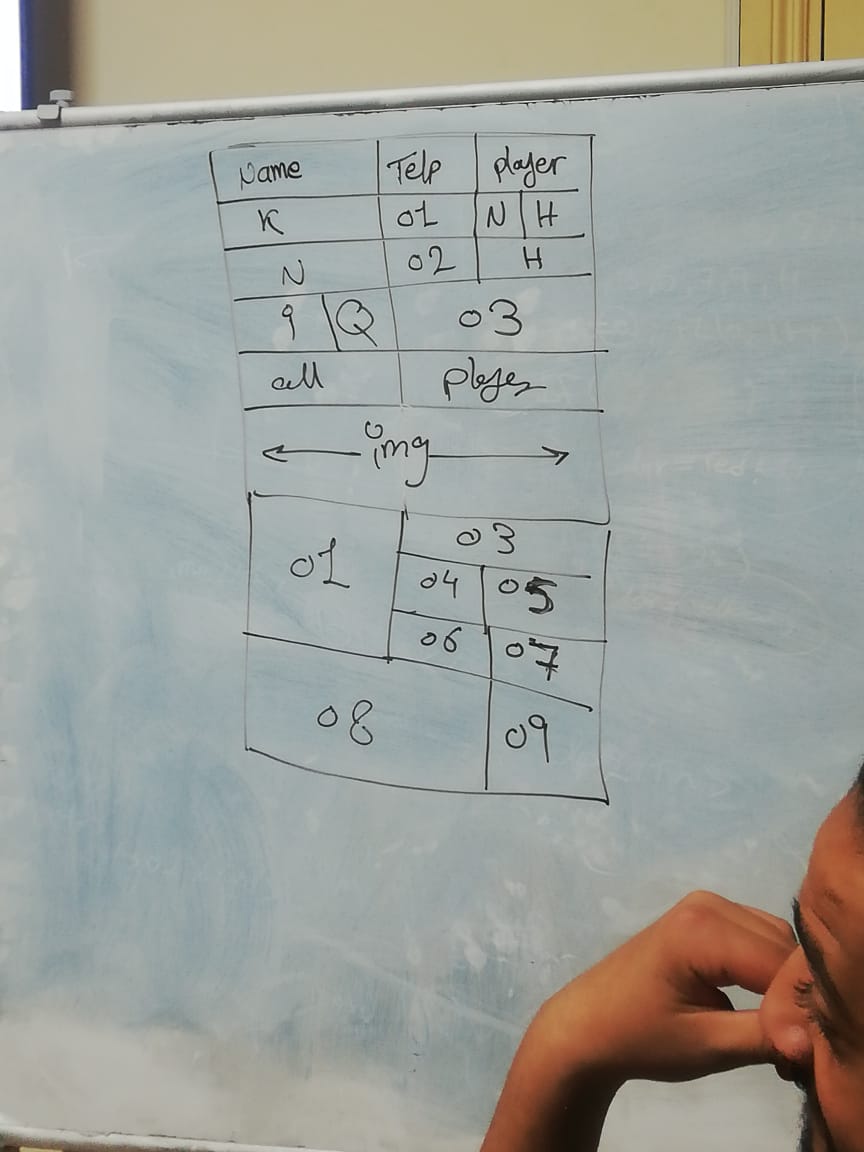 Name Telp player
K 01 N H
N 02 H
9 Q 03
all player
img
01 03
04 05
06 07
08 09